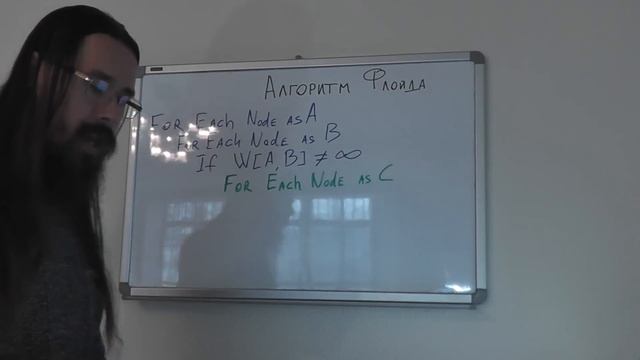 Алгоритм Флойда
For Each Node as A
For Each Node as B
If W[A,B] ≠ ∞
For Each Node as C